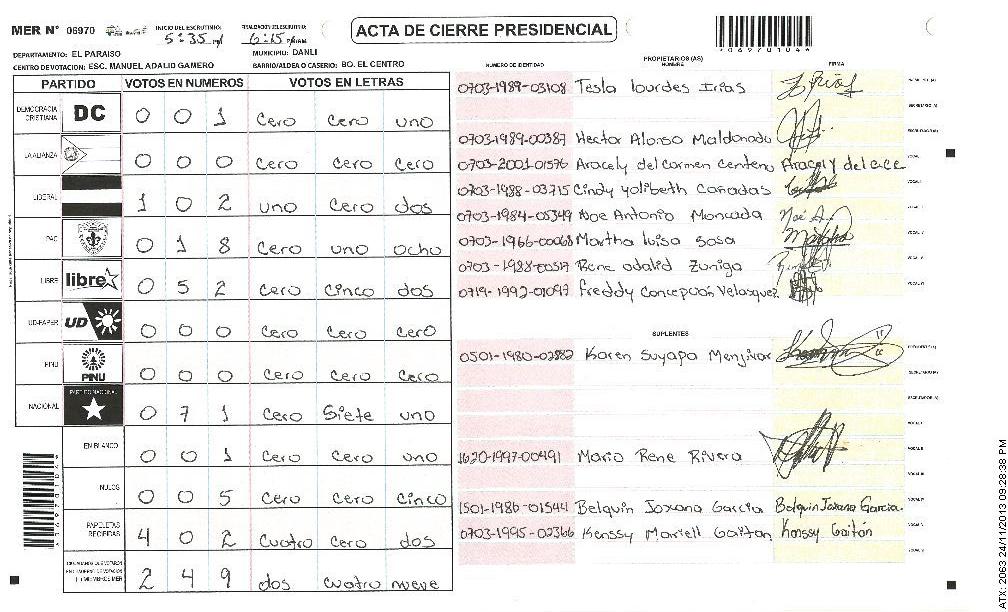 MER Nº 06970
INICIO DEL ESCRUTINIO: 5:35 pm
FINALIZACION DEL ESCRUTINIO: 6:15
ACTA DE CIERRE PRESIDENCIAL
*06970104*
DEPARTAMENTO: EL PARAISO MUNICIPIO: DANLI
CENTRO DE VOTACION: ESC. MANUEL ADALID GAMERO BARRIO/ALDEA O CASERIO: BO. EL CENTRO
PARTIDO VOTOS EN NUMEROS VOTOS EN LETRAS
DEMOCRACIA CRISTIANA DC 0 0 1 cero cero uno
LA ALIANZA 0 0 0 cero cero cero
LIBERAL 1 0 2 uno cero dos
PAC 0 1 8 cero uno ocho
LIBRE libre 0 5 2 cero cinco dos
UD-FAPER UD 0 0 0 cero cero cero
PINU PINU 0 0 0 cero cero cero
NACIONAL PARTIDO NACIONAL 0 7 1 cero siete uno
EN BLANCO 0 0 1 cero cero uno
NULOS 0 0 5 cero cero cinco
PAPELETAS RECIBIDAS 4 0 2 cuatro cero dos
2 4 9 dos cuatro nueve
PROPIETARIOS (AS)
NUMERO DE IDENTIDAD NOMBRE FIRMA
0703-1989-03108 Tesla lourdes Irias
0703-1989-00387 Hector Alonso Maldonado
0703-2001-01576 Aracely del carmen centeno Aracely del c.c.e
0703-1988-03715 Cindy Yolibeth Cañadas
0703-1984-05349 Noe Antonio Moncada Noé A.
0703-1966-00068 Martha luisa sosa
0703-1988-00517 Rene adalid Zuniga
0719-1992-01097 Freddy Concepción Velasquez
SUPLENTES
0501-1980-02882 Karen Suyapa Menjivar
1620-1997-00491 Mario Rene Rivera
1501-1986-01544 Belquin Joxana Garcia Belquin Joxana Garcia
0703-1995-02366 Kenssy Mariell Gaitan Kenssy Gaitán
ATX: 2063 24/11/2013 09:28:38 PM